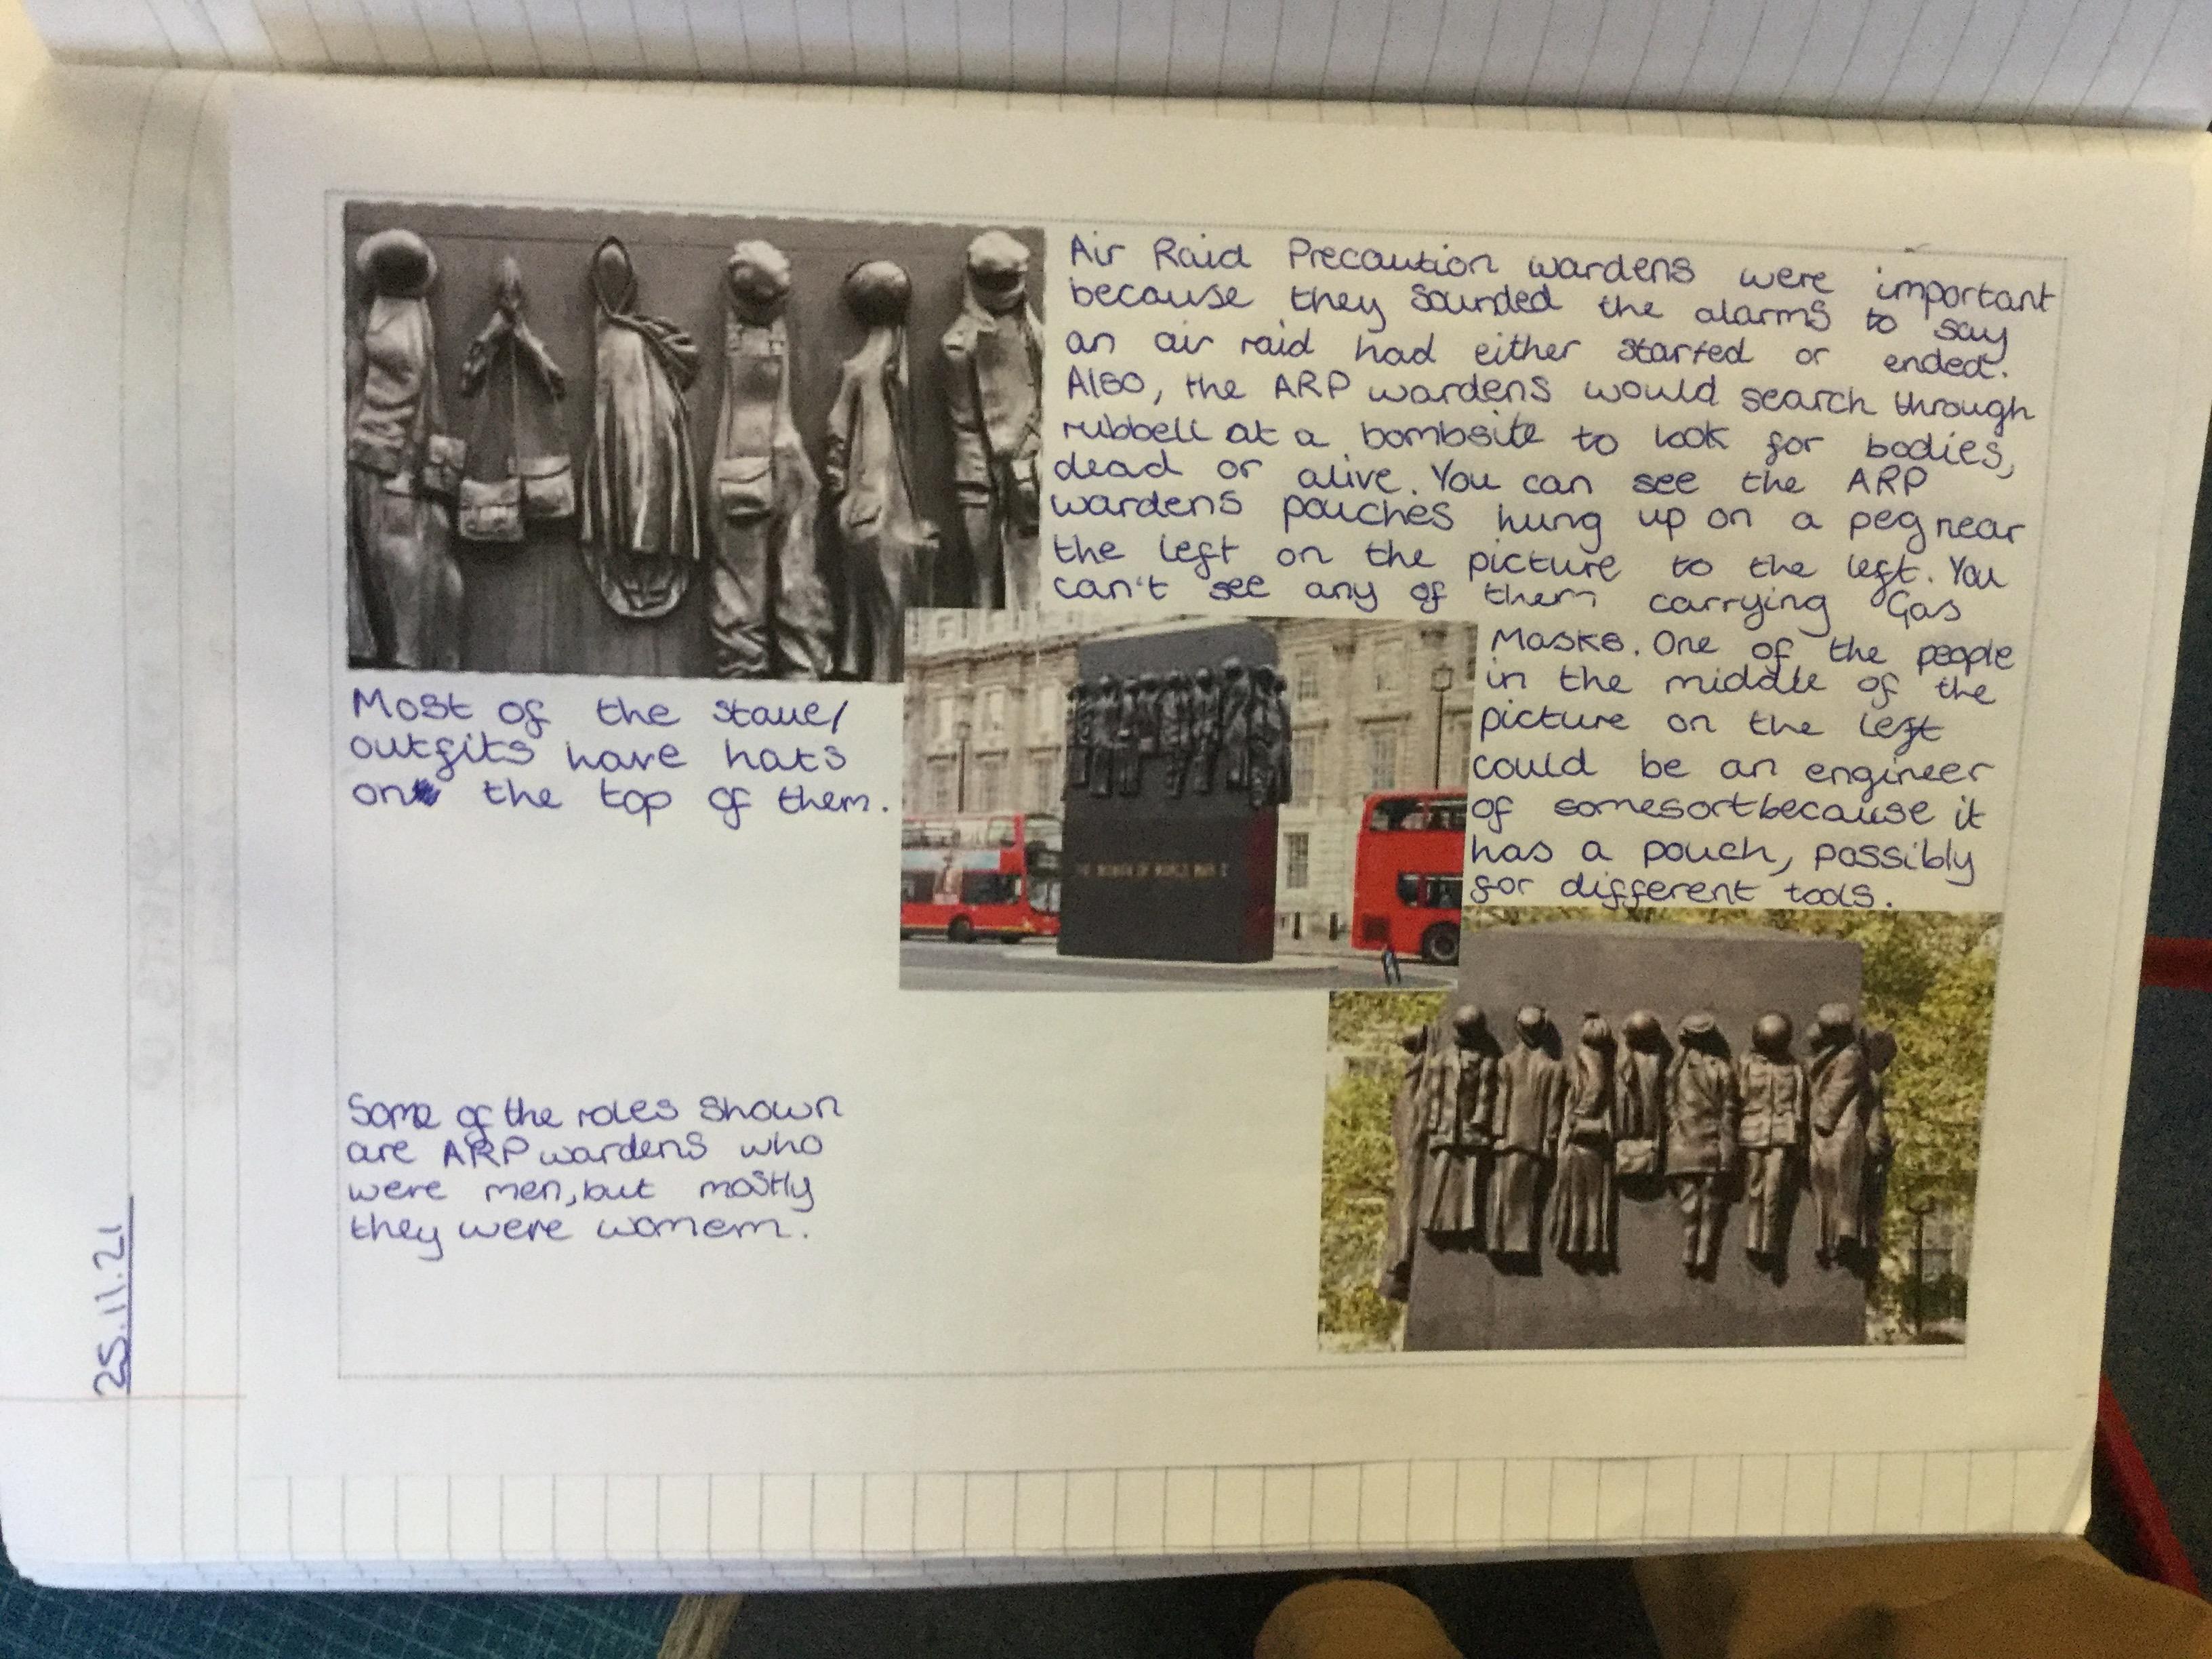 Air Raid Precaution wardens were important
because they sounded the alarms to say
an air raid had either started or ended.
Also, the ARP wardens would search through
rubbell at a bombsite to look for bodies,
dead or alive. You can see the ARP
wardens pouches hung up on a peg near
the left on the picture to the left. You
can't see any of them carrying Gas
Masks. One of the people
in the middle of the
picture on the left
could be an engineer
of somesort because it
has a pouch, possibly
for different tools.
Most of the staue/
outfits have hats
on the top of them.
THE WOMEN OF WORLD WAR II
Some of the roles shown
are ARP wardens who
were men, but mostly
they were womem.
25.11.21